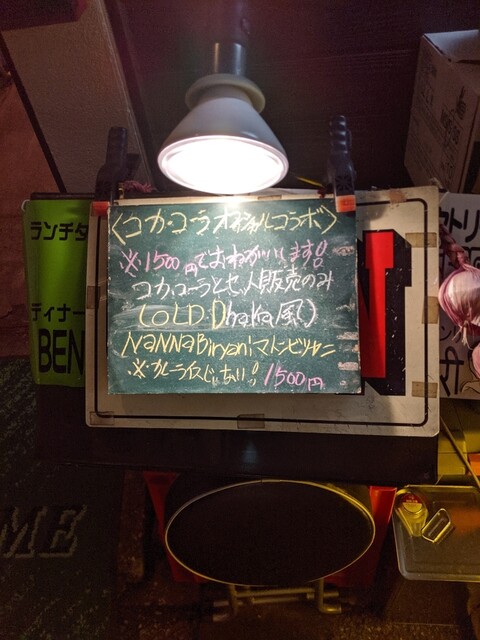 〈コカ・コーラオフィシャルコラボ〉
※1500円でおねがいします!!
コカ・コーラとセット販売のみ
(OLD Dhaka風)
NaNNaBiryaniマトンビリヤニ
※カレーライスじゃない! 1500円
ランチタ
ディナー
BEN
ME